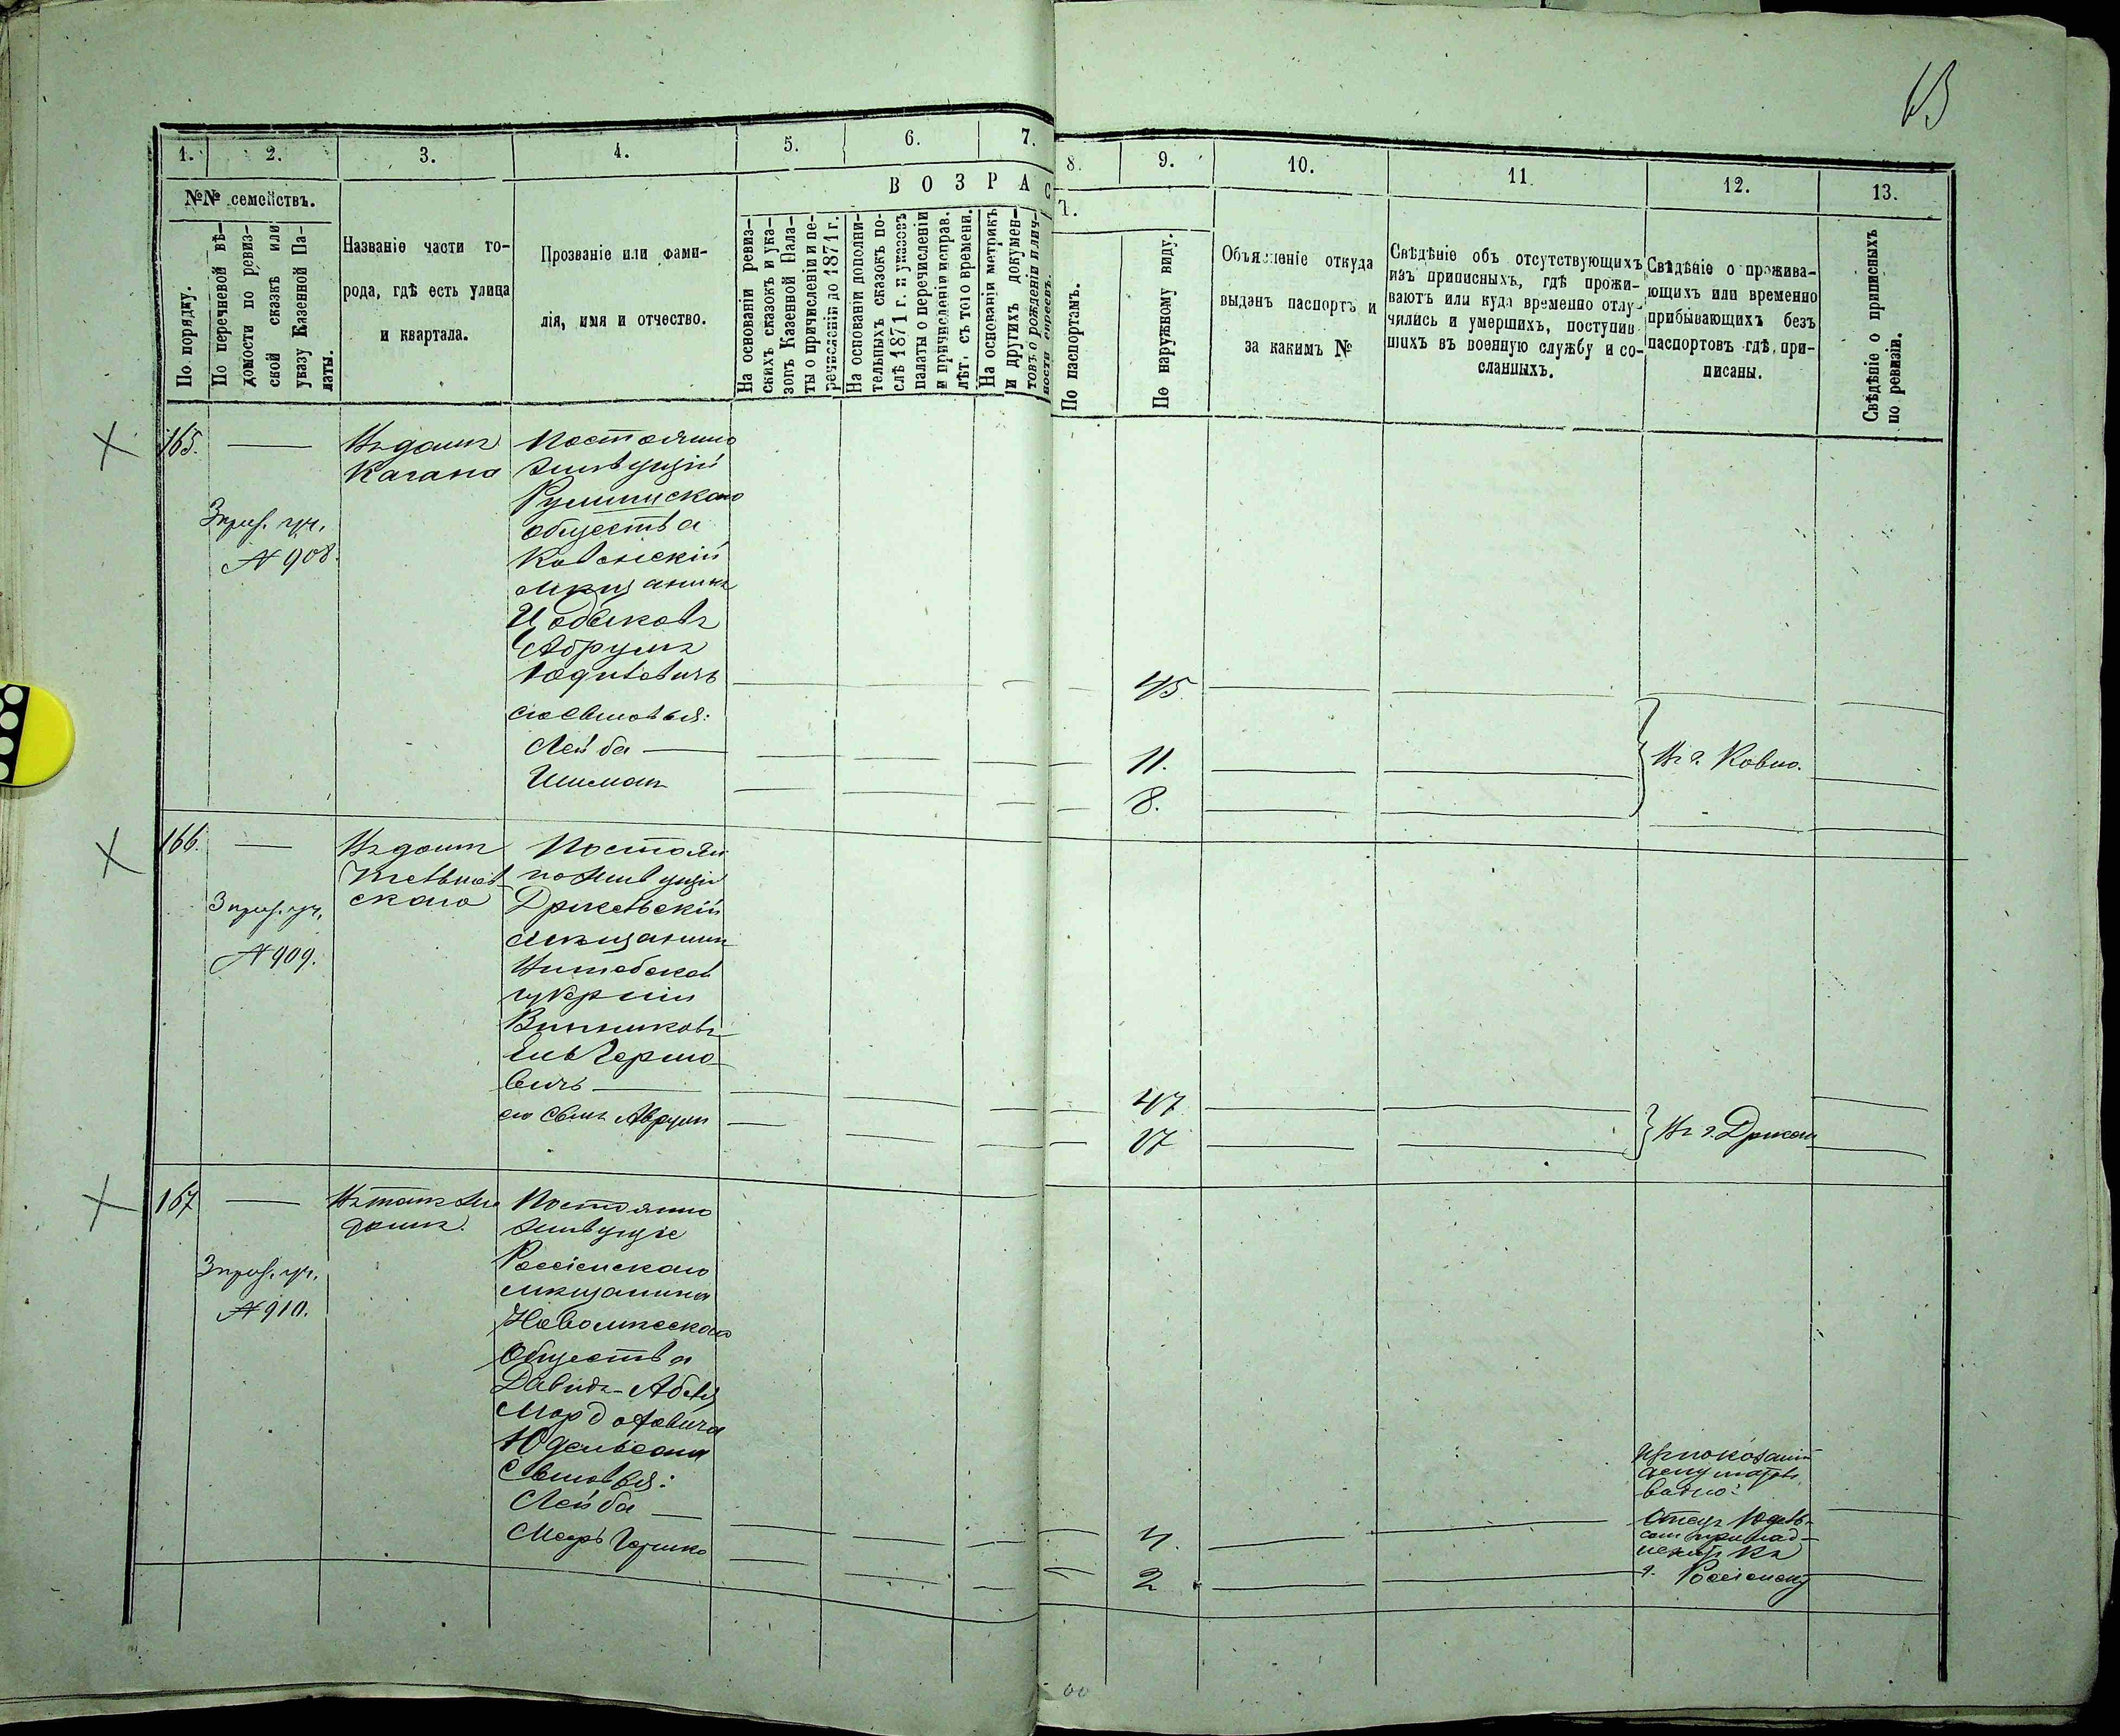 63
1. 2. 3. 4. 5. 6. 7. 8. 9. 10. 11 12. 13.
№№ семействъ.
По порядку.
По перечневой вѣ-
домости по ревиз-
ской сказкѣ или
указу Казенной Па-
латы.
Названіе части го-
рода, гдѣ есть улица
и квартала.
Прозваніе или фами-
лія, имя и отчество.
ВОЗРАСТ.
На основаніи ревиз-
скихъ сказокъ и ука-
зовъ Казенной Пала-
ты о причисленіи и пе-
речисленіи до 1871 г.
На основаніи дополни-
тельныхъ сказокъ по-
слѣ 1871 г. и указовъ
палаты о перечисленіи
и причисленіи исправ.
лѣт. съ того времени.
На основаніи метрикъ
и другихъ докумен-
товъ о рожденіи и лич-
ности евреевъ.
По паспортамъ.
По наружному виду.
Объясненіе откуда
выданъ паспортъ и
за какимъ №
Свѣдѣніе объ отсутствующихъ
изъ приписныхъ, гдѣ прожи-
ваютъ или куда временно отлу-
чились и умершихъ, поступив
шихъ въ военную службу и со-
сланныхъ.
Свѣдѣніе о прожива-
ющихъ или временно
прибывающихъ безъ
паспортовъ гдѣ, при-
писаны.
Свѣдѣніе о приписныхъ
по ревизіи.
165.
№ 908.
Въ домѣ
Кагана
Постоянно
живущій
Румшискаго
общества
Ковенскій
мѣщанинъ
Абрумъ
его сыновья:
Лейба
Шиманъ
45
11.
8.
Въ г. Ковно.
166.
№ 909.
Въ домѣ
скаго
Постоян
но живущій
мѣщанинъ
Витебской
губерніи
Винниковъ
вичъ
его сынъ Аврумъ
47
17
Въ г.
167
№ 910.
Въ томъ же
домѣ.
Постоянно
живущіе
Россіенскаго
мѣщанина
Новомѣсскаго
Общества
Давидъ-Абеля
Мордховича
Юдельсона
сыновья:
Лейба
4.
2
Изъ показаній
депутатовъ
видно:
Отецъ Юдель-
сонъ принад-
лежитъ къ
г. Россіенску